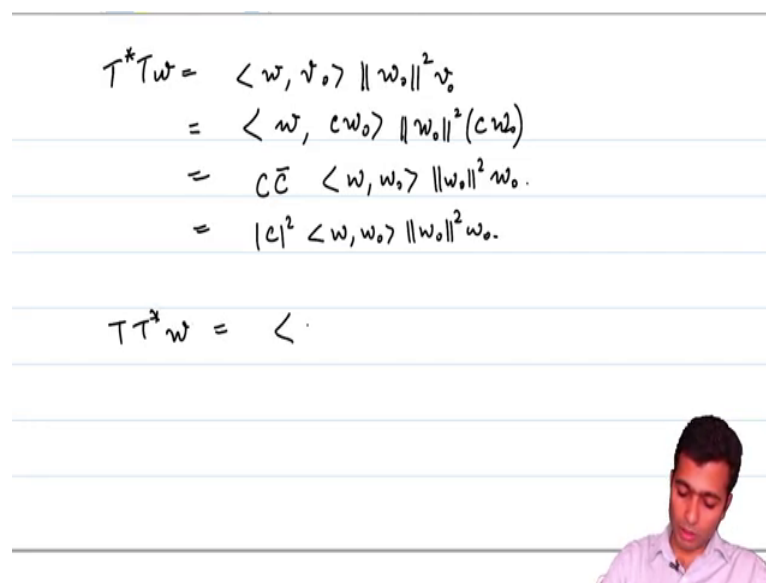 T*Tw = <w, v₀> ||w₀||² v₀
= <w, cw₀> ||w₀||² (cw₀)
= c c̄ <w, w₀> ||w₀||² w₀.
= |c|² <w, w₀> ||w₀||² w₀.
TT*w = <